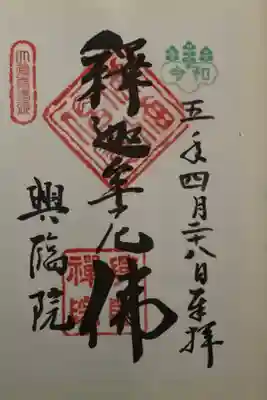 令和
五年四月二十八日奉拝
釋迦牟尼佛
興臨院